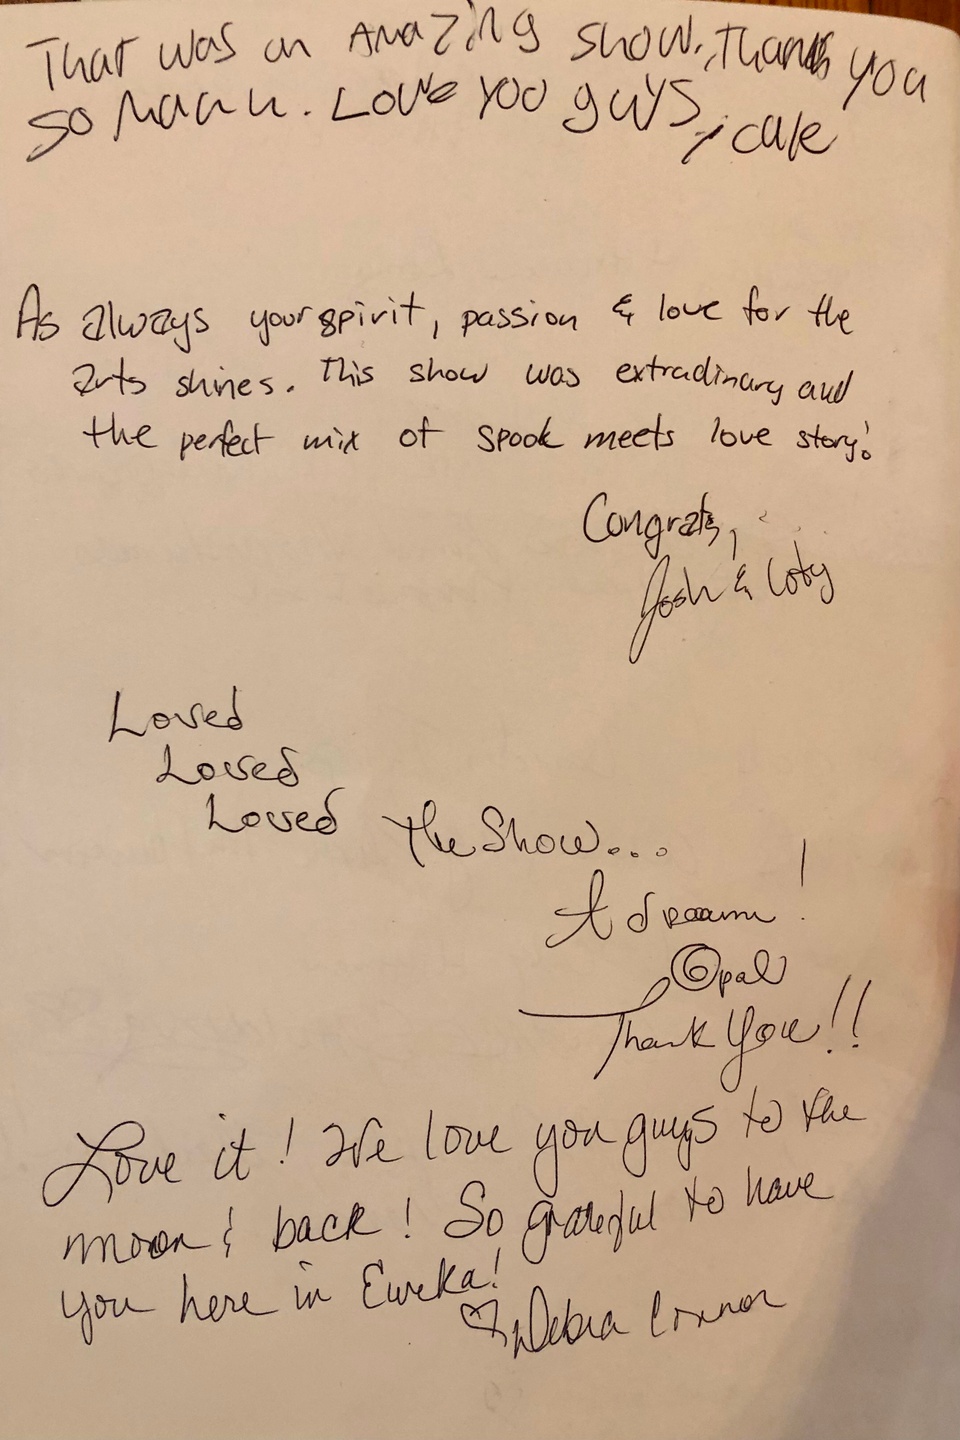 That was an Amazing show, Thank you
so much. Love you guys,
As always your spirit, passion & love for the
arts shines. This show was extradinary and
the perfect mix of spook meets love story!
Congrats,
Josh & Coty
Loved
Loved
Loved the Show...
A dream!
Opal
Thank You!!
Love it! We love you guys to the
moon & back! So grateful to have
you here in Eureka!
Debra Connor